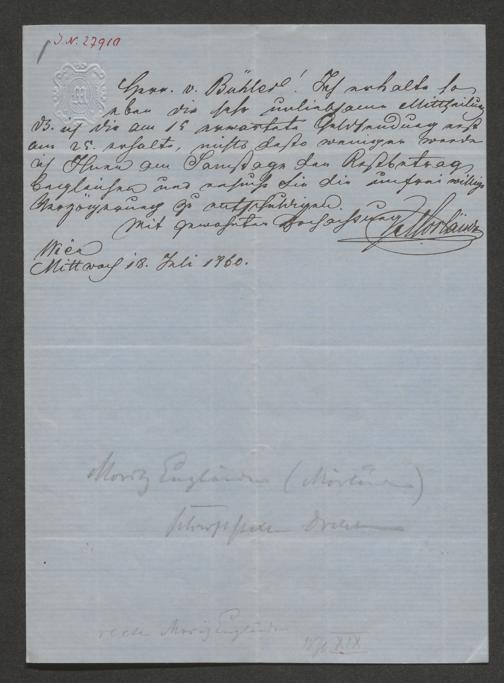 J.N. 27910
Herr v. Bühler! Ich erhalte so
eben die sehr unliebsame Mittheilung
daß ich die am 15 erwartete Geldsendung erst
am 25. erhalte, nichts desto weniger werde
ich Ihnen am Samstage den Restbetrag
begleichen und ersuche Sie die unfreiwillige
Verzögerung zu entschuldigen.
Mit gewohnter Hochachtung Mörländer
Wien
Mittwoch 18. Juli 1860.
Moritz Engländer (Mörländer)
recte Moritz Engländer
XIX